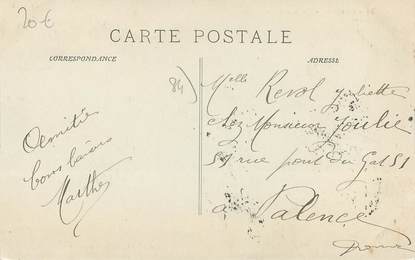 20€
CARTE POSTALE
CORRESPONDANCE
ADRESSE
84)
Amitié
bons baisers
Marthe
Melle Revol Juliette
chez Monsieur Joulie
59 rue pont du Gat 51
a Valence
Drome